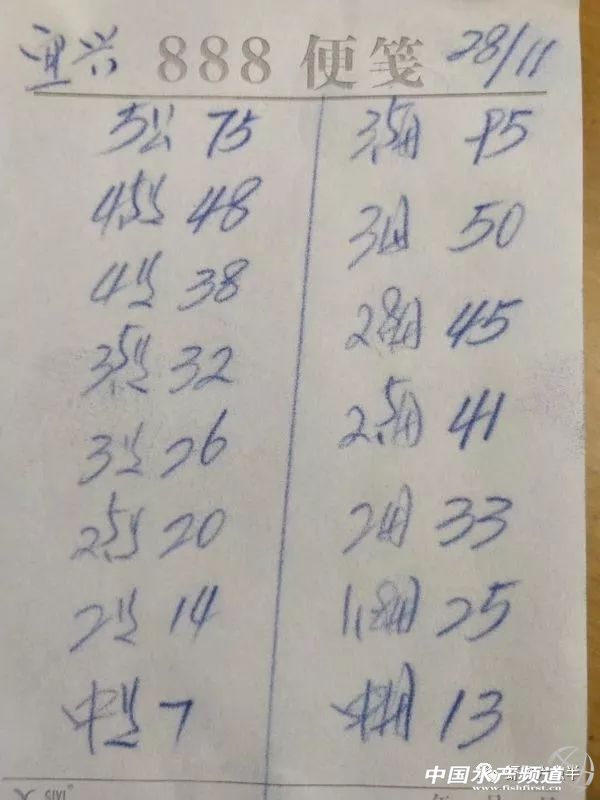 宜兴 888 便笺 28/11
5公 75
4.5公 48
4公 38
3.5公 32
3公 26
2.5公 20
2公 14
中公 7
3.5母 95
3母 50
2.8母 45
2.5母 41
2母 33
1.8母 25
中母 13
SIXI®
中国水产频道
www.fishfirst.cn